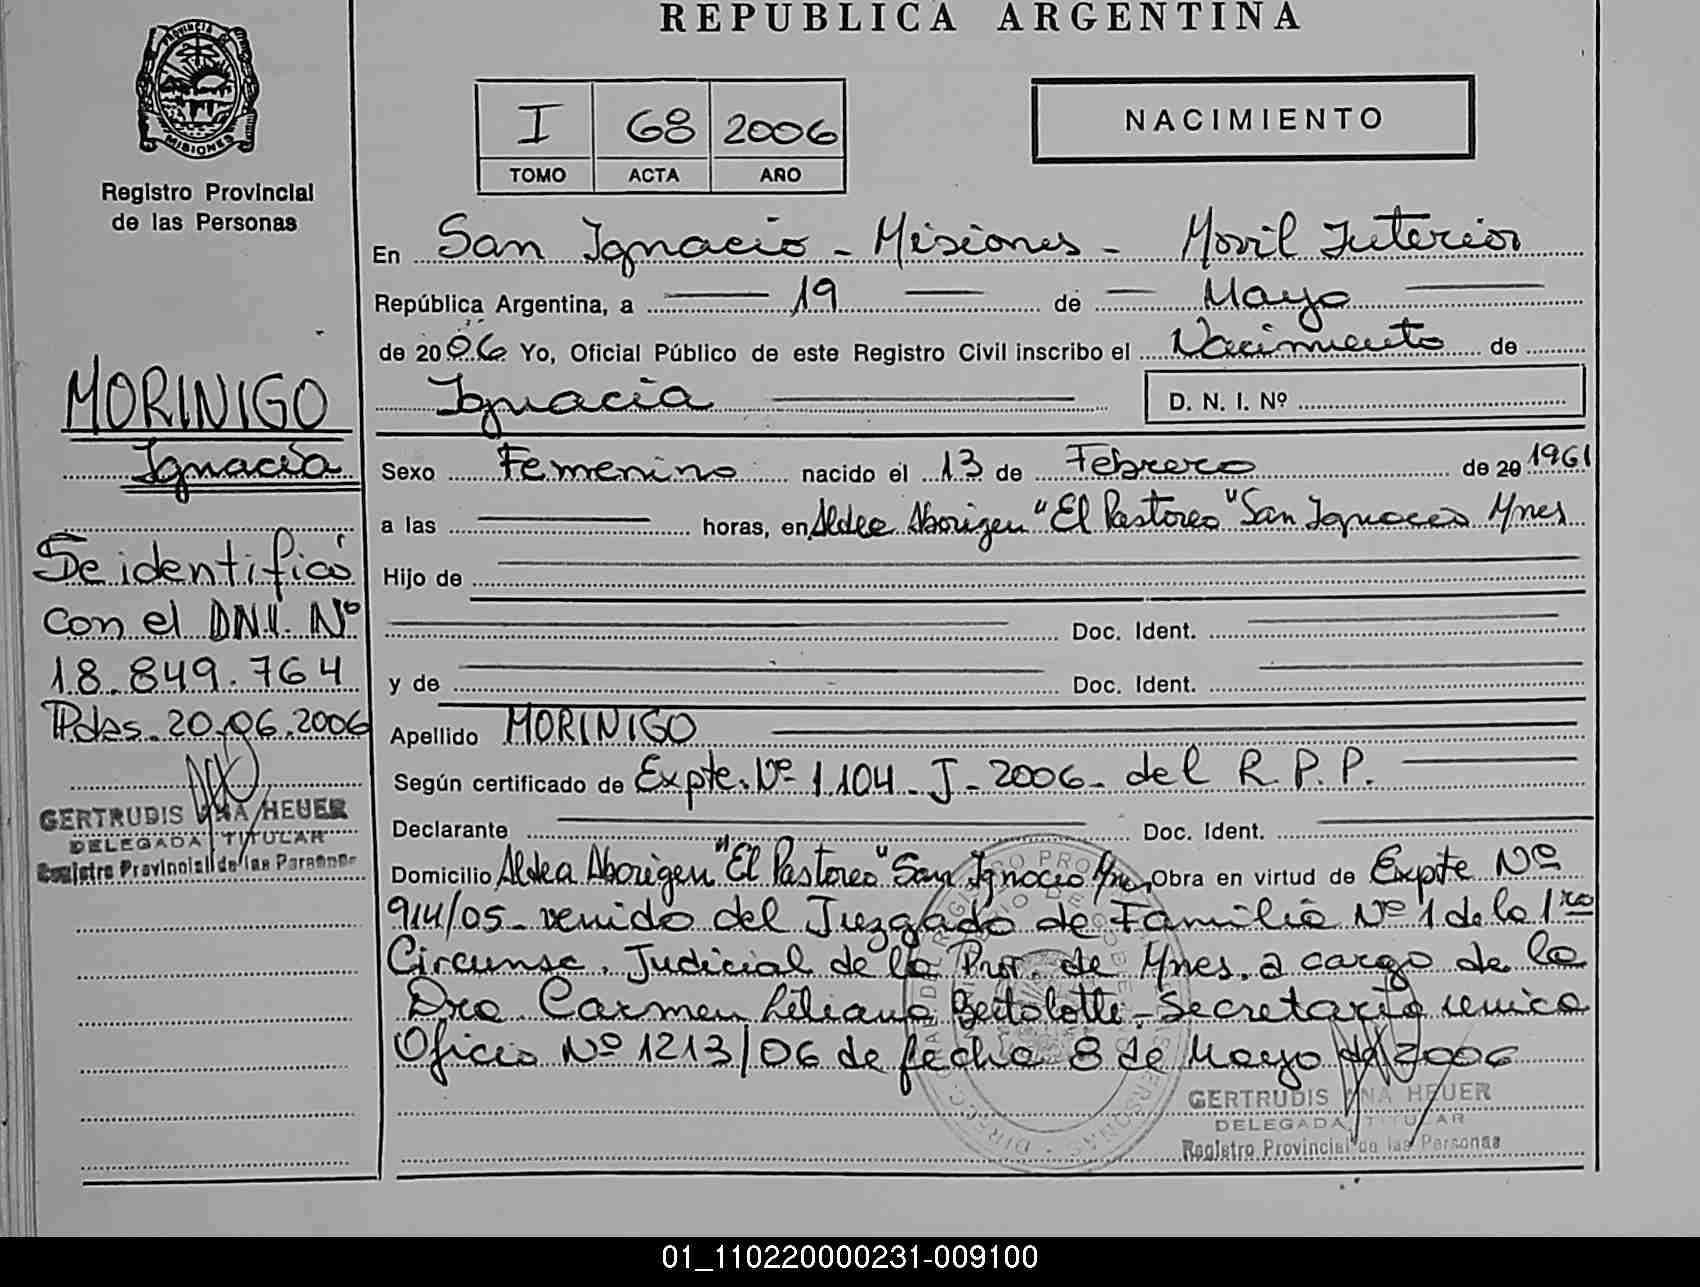 REPUBLICA ARGENTINA
PROVINCIA DE
MISIONES
Registro Provincial
de las Personas
I 68 2006
TOMO ACTA AÑO
NACIMIENTO
En San Ignacio - Misiones - Movil Interior
República Argentina, a 19 de Mayo
de 2006 Yo, Oficial Público de este Registro Civil inscribo el Nacimiento de
Ignacia D. N. I. Nº
Sexo Femenino nacido el 13 de Febrero de 20 1961
a las horas, en Aldea Aborigen "El Pastoreo" San Ignacio Mnes
Hijo de
Doc. Ident.
y de Doc. Ident.
Apellido MORINIGO
Según certificado de Expte. Nº 1104 - J - 2006 - del R. P. P.
Declarante Doc. Ident.
Domicilio Aldea Aborigen "El Pastoreo" San Ignacio Mnes, Obra en virtud de Expte Nº
914/05 - venido del Juzgado de Familia Nº 1 de la 1ra
Circunsc. Judicial de la Prov. de Mnes. a cargo de la
Dra Carmen Liliana Bertolotti - Secretaria unica
Oficio Nº 1213/06 de fecha 8 de Mayo del 2006
GERTRUDIS ANA HEUER
DELEGADA TITULAR
Registro Provincial de las Personas
MORINIGO
Ignacia
Se identificó
con el DNI. Nº
18.849.764
Pdas. 20.06.2006
GERTRUDIS ANA HEUER
DELEGADA TITULAR
Registro Provincial de las Personas
01_110220000231-009100